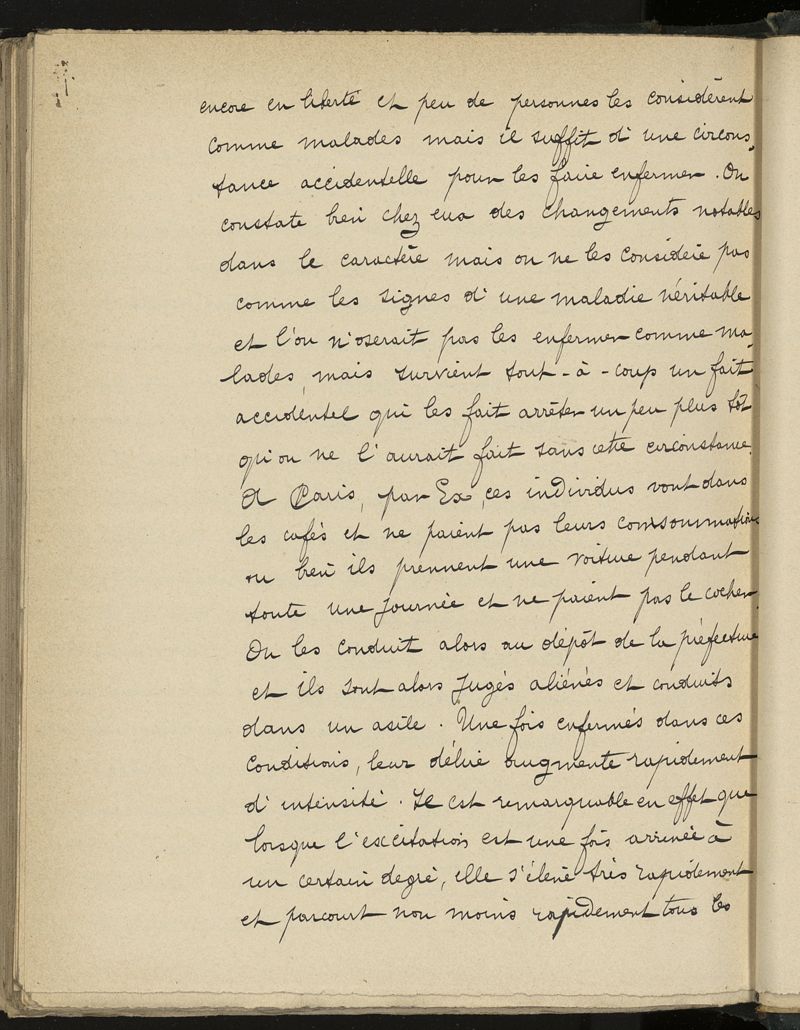 encore en liberté et peu de personnes les considèrent
comme malades mais il suffit d'une circons-
tance accidentelle pour les faire enfermer. On
constate bien chez eux des changements notables
dans le caractère mais on ne les considère pas
comme les signes d'une maladie véritable
et l'on n'oserait pas les enfermer comme ma-
lades, mais survient tout-à-coup un fait
accidentel qui les fait arrêter un peu plus tôt
qu'on ne l'aurait fait sans cette circonstance.
A Paris, par Ex, ces individus vont dans
les cafés et ne paient pas leurs consommations
ou bien ils prennent une voiture pendant
toute une journée et ne paient pas le cocher.
On les conduit alors au dépôt de la préfecture
et ils sont alors jugés aliénés et conduits
dans un asile. Une fois enfermés dans ces
conditions, leur délire augmente rapidement
d'intensité. Il est remarquable en effet que
lorsque l'excitation est une fois arrivée à
un certain degré, elle s'élève très rapidement
et parcourt non moins rapidement tous les